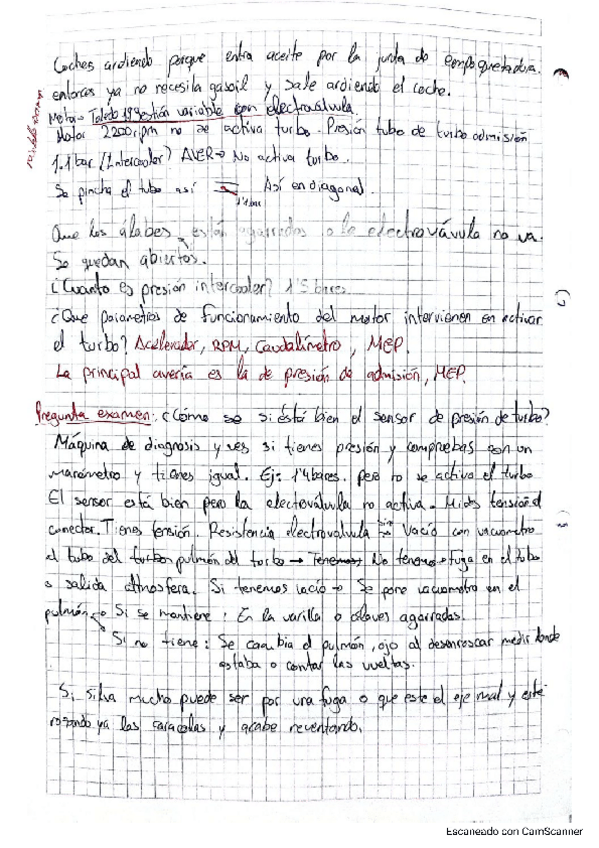 Coches ardiendo porque entra aceite por la junta de empaquetadura.
entonces ya no necesita gasoil y sale ardiendo el coche.
Motor Toledo 1.9 gestión variable con electroválvula
Motor 2200 rpm no se activa turbo. Presión tubo de turbo admisión
1.1 bar (Intercooler) AVER → No activa turbo.
Se pincha el tubo así Así en diagonal.
Que los álabes están agarrados o la electrovávula no va.
Se quedan abiertos.
¿Cuanto es presión intercooler? 1'5 bares
¿Que parametros de funcionamiento del motor intervienen en activar
el turbo? Acelerador, RPM, Caudalímetro, MEP.
La principal avería es la de presión de admisión, MEP.
Pregunta examen: ¿Cómo se si está bien el sensor de presión de turbo?
Máquina de diagnosis y ves si tienes presión y compruebas con un
manómetro y tienes igual. Ej: 1'4 bares. pero no se activa el turbo
El sensor está bien pero la electroválvula no activa. Mides tensión al
conector. Tienes tensión. Resistencia electroválvula Vacío con vacuometro
al tubo del turbo pulmón del turbo → Tenemos No tenemos → fuga en el tubo
o salida atmosfera. Si tenemos vacío → Se pone vacuometro en el
pulmón → Si se mantiene: En la varilla o álaves agarradas.
Si no tiene: Se cambia el pulmón, ojo al desenroscar medir donde
estaba o contar las vueltas.
Si silva mucho puede ser por una fuga o que este el eje mal y esté
rozando ya las caracolas y acabe reventando.
Escaneado con CamScanner